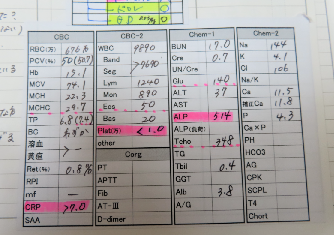 CBC CBC-2 Chem-1 Chem-2
RBC(万) 676 WBC 9890 BUN 17.0 Na 144
PCV(%) 50 Band Cre 0.7 K 4.1
Hb 15.1 Seg >7690 UN/Cre Cl 106
MCV 74.1 Lym 1240 Glu 140 Na/K
MCH 22.3 Mon 890 ALT 37 Ca 11.5
MCHC 29.7 Eos 50 AST 補正Ca 11.8
TP 6.8 Bas 20 ALP 514 P 4.3
BC Plat(万) <1.0 ALP(負荷) Ca×P
溶血 other Tcho 348 PH
黄疸 Corg TG HCO3
Ret(%) 0.8% PT Tbil 0.4 AG
RPI APTT GGT CPK
mf ー Fib Alb 3.8 SCPL
CRP >7.0 AT-III A/G T4
SAA D-dimer Chort